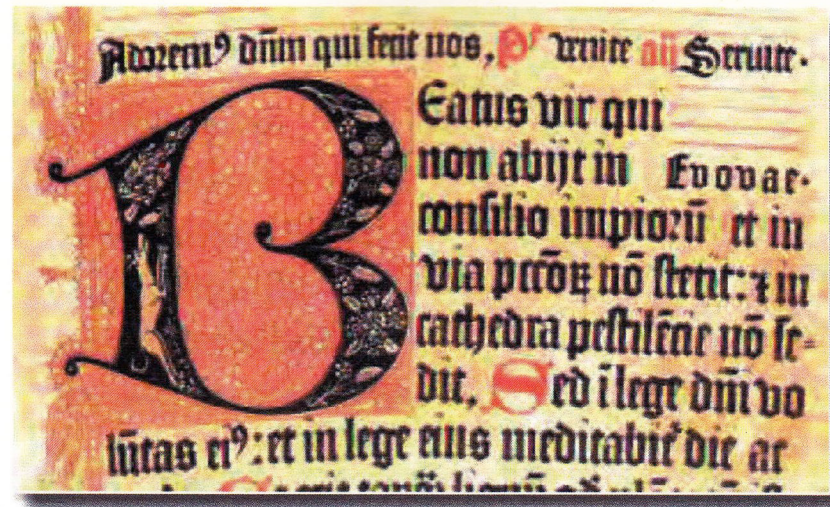 Adorem⁹ dn̄m qui fecit nos, Pˢ venite an̄ Seruite.
BEatus vir qui
non abijt in Evovae.
consilio impiorū et in
via pccōꝝ nō stetit: ⁊ in
cathedra pestilēcie nō se=
dit, Sed ī lege dn̄i vo
lūtas ei⁹: et in lege eius meditabit᷑ die ac